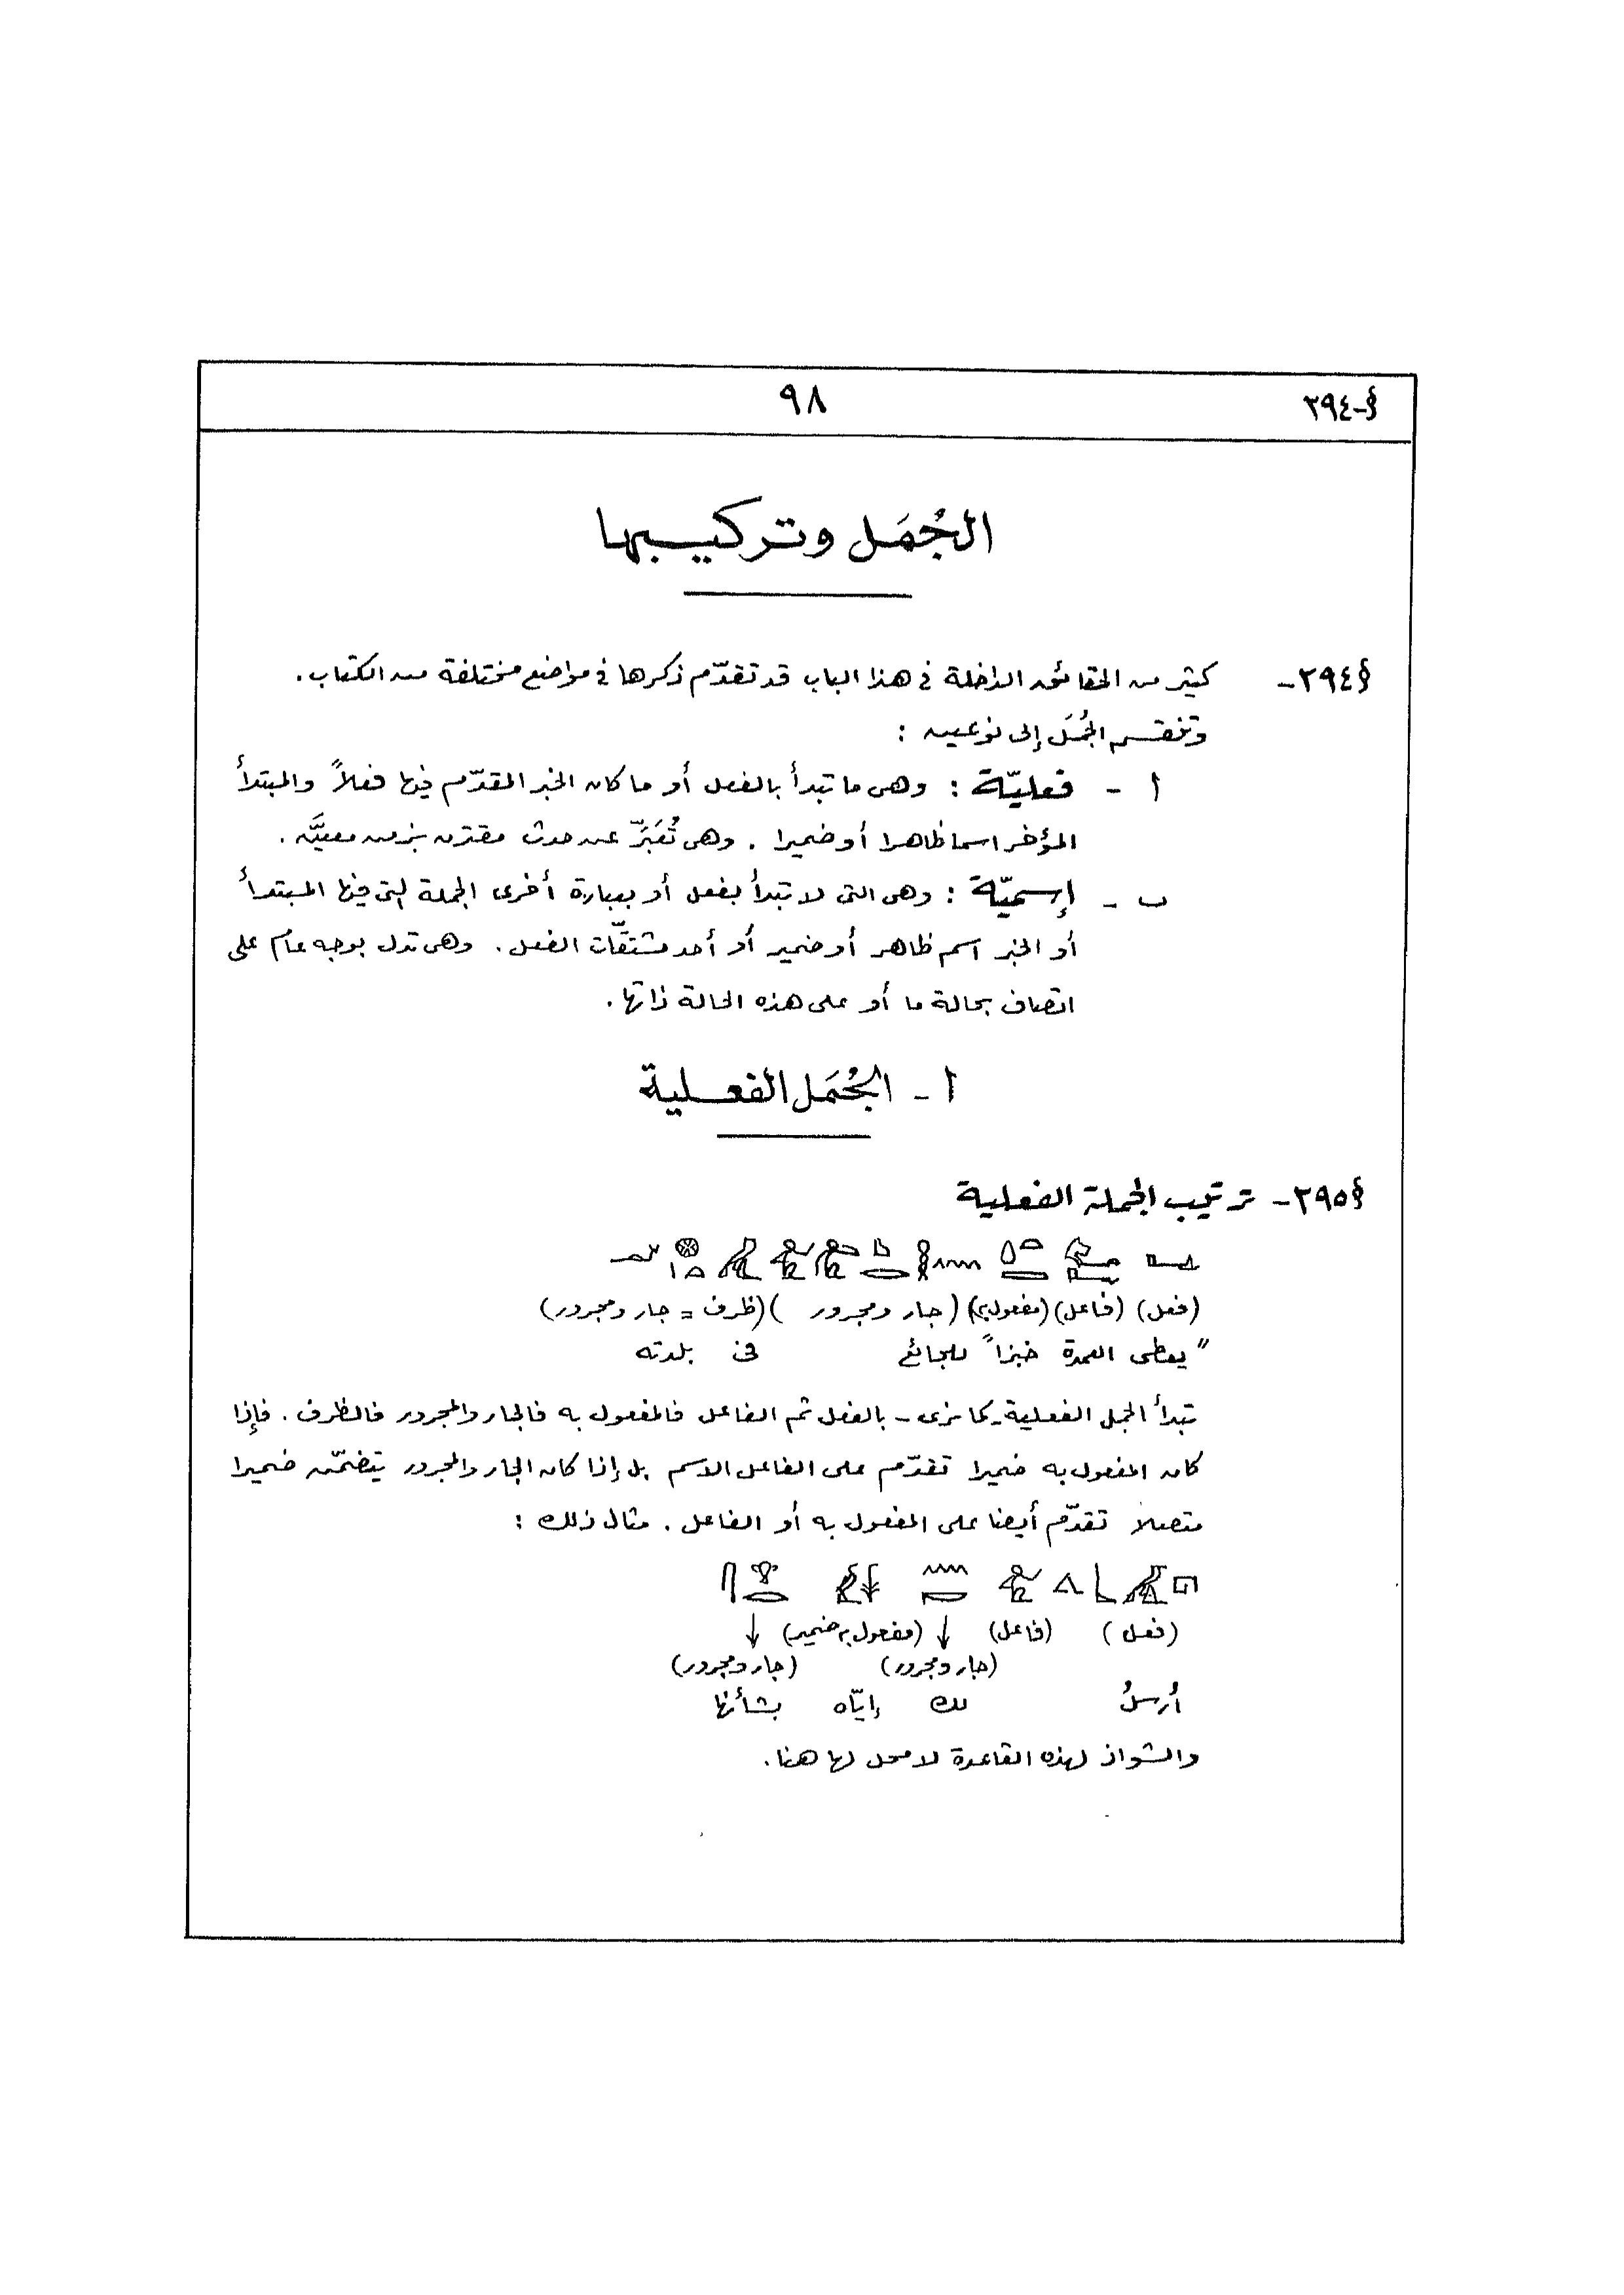 §-٢٩٤
٩٨
الجُمَل وتركيبها
§٢٩٤- كثير من الحقائق الداخلة في هذا الباب قد تقدّم ذكرها في مواضع مختلفة من الكتاب.
وتنقسم الجُمَل إلى نوعين :
أ - فعليّة : وهى ما تبدأ بالفعل أو ما كان الخبر المقدّم فيها فعلاً والمبتدأ
المؤخر اسما ظاهرا أو ضميرا . وهى تُعَبِّر عن حدث مقترن بزمن معيَّن .
ب - إسميّة : وهى التى لا تبدأ بفعل أو بعبارة أخرى الجملة التى فيها المبتدأ
أو الخبر اسم ظاهر أو ضمير أو أحد مشتقّات الفعل . وهى تدل بوجه عام على
اتصاف بحالة ما أو على هذه الحالة ذاتها .
أ - الجُمَل الفعلية
§٢٩٥- ترتيب الجملة الفعلية
(فعل) (فاعل) (مفعول به) (جار ومجرور ) (ظرف = جار ومجرور)
" يعطى العمدة خبزاً للجائع فى بلدته
تبدأ الجمل الفعلية - كما نرى - بالفعل ثم الفاعل فالمفعول به فالجار والمجرور فالظرف . فإذا
كان المفعول به ضميرا تقدّم على الفاعل الاسم بل إذا كان الجار والمجرور يتضمّن ضميرا
متصلا تقدّم أيضا على المفعول به أو الفاعل . مثال ذلك :
(فعل ) (فاعل) ↓ (مفعول به ضمير) ↓
(جار ومجرور) (جار ومجرور)
أُرسلُ لك إيّاه بشأنها
والشواذ لهذه القاعدة لا محل لها هنا .